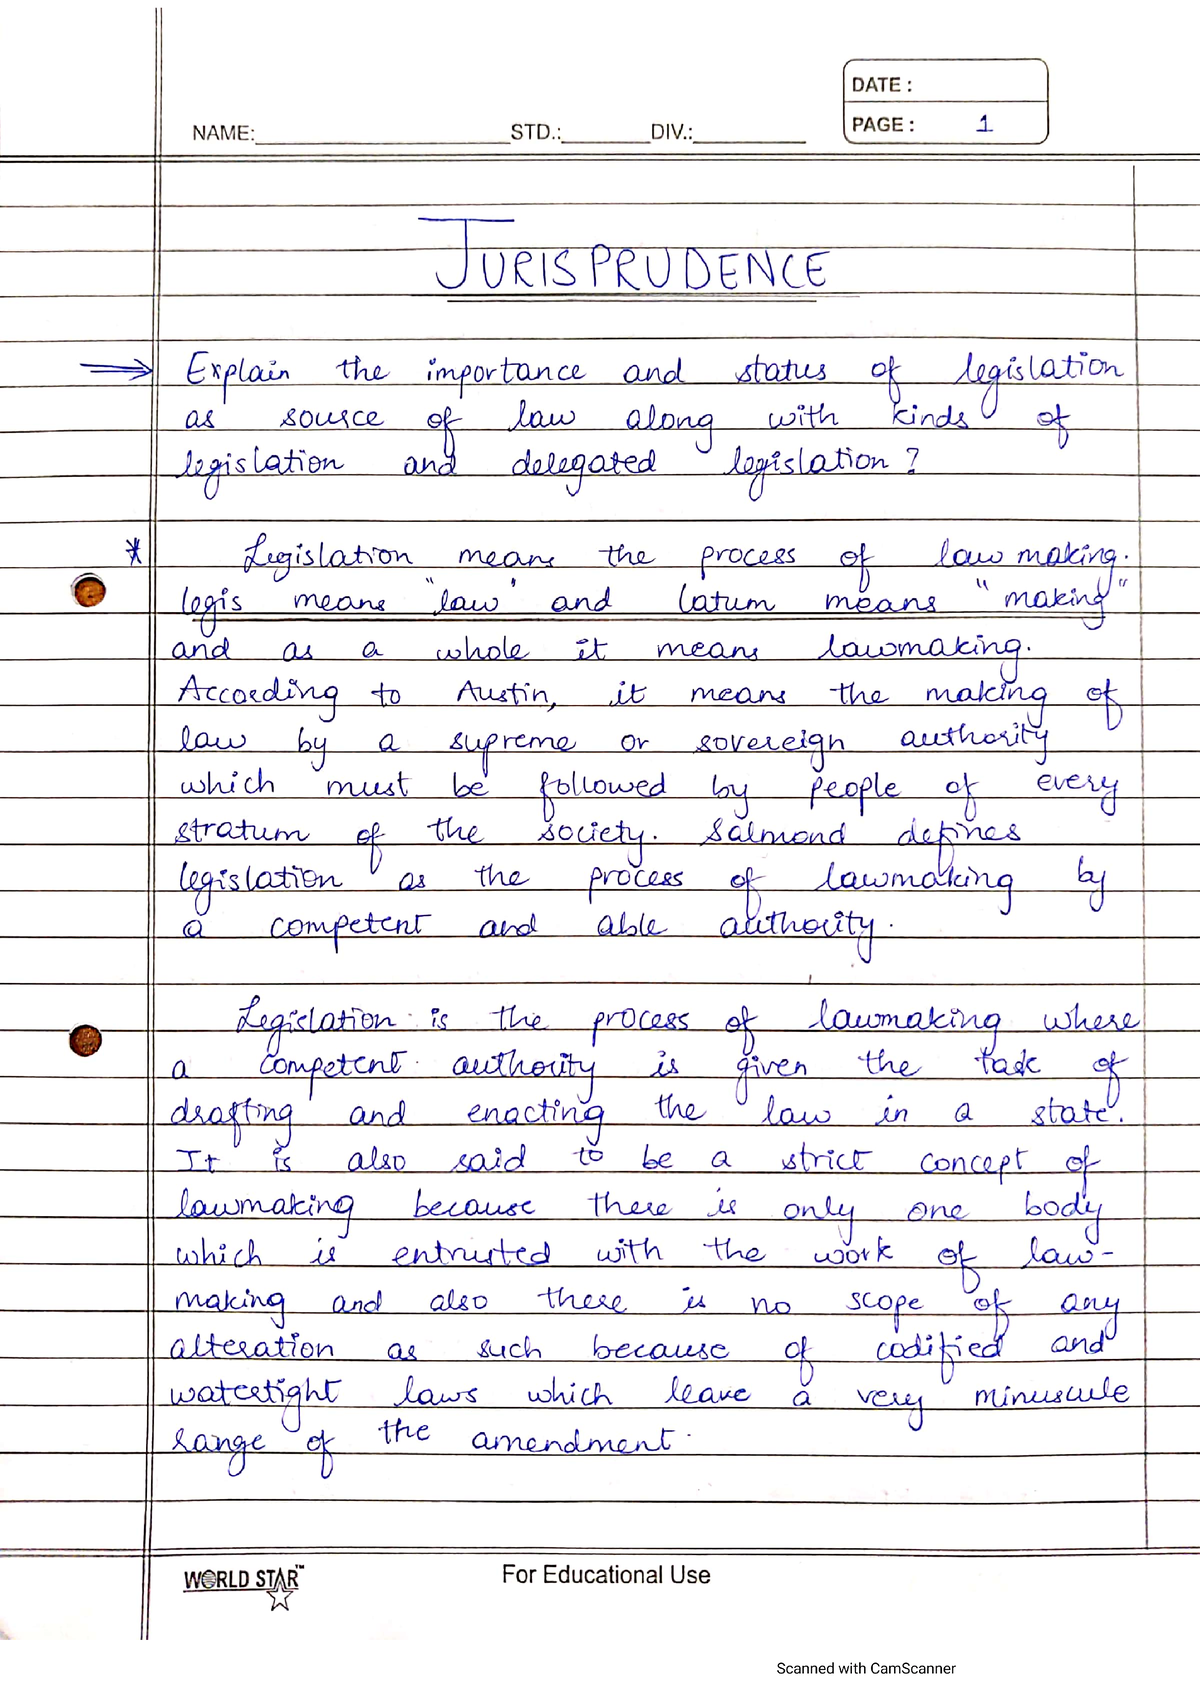 DATE :
PAGE : 1
NAME: STD.: DIV.:
JURISPRUDENCE
⇒ Explain the importance and status of legislation
as source of law along with kinds of
legislation and delegated legislation?
* Legislation means the process of law making.
legis means "law" and latum means "making"
and as a whole it means lawmaking.
According to Austin, it means the making of
law by a supreme or sovereign authority
which must be followed by people of every
stratum of the society. Salmond defines
legislation as the process of lawmaking by
a competent and able authority.
Legislation is the process of lawmaking where
a competent authority is given the task of
drafting and enacting the law in a state.
It is also said to be a strict concept of
lawmaking because there is only one body
which is entrusted with the work of law-
making and also there is no scope of any
alteration as such because of codified and
watertight laws which leave a very minuscule
range of the amendment.
WORLD STAR™
For Educational Use
Scanned with CamScanner